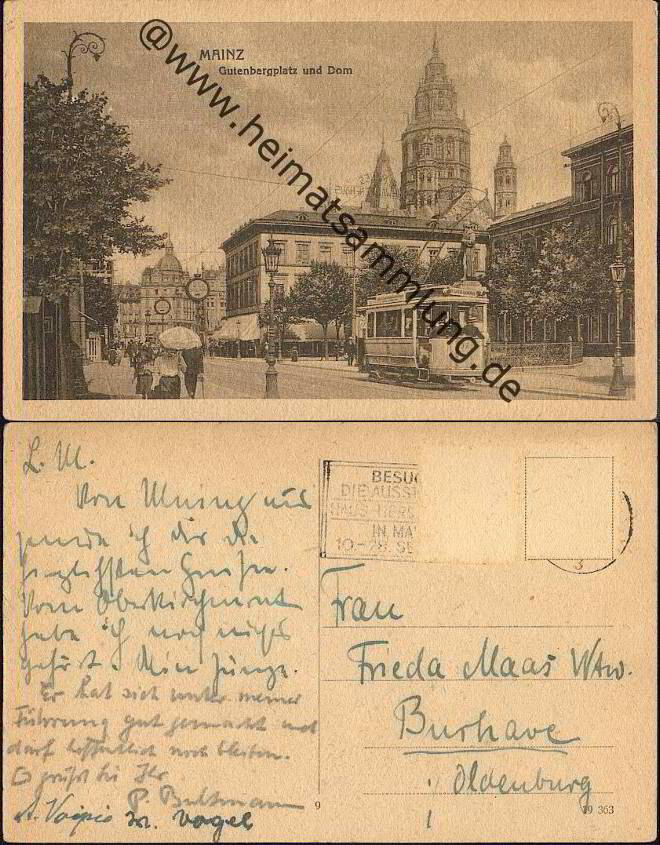 MAINZ
Gutenbergplatz und Dom
@www.heimatsammlung.de
L. M.
Von Mainz aus
sende ich dir die
herzlichsten Grüße.
Vom Oberkirchenrat
habe ich noch nichts
gehört. Dein Junge.
Er hat sich unter meiner
Führung gut gemacht und
darf hoffentlich noch bleiben.
Es grüßt Sie Ihr
P. Bultmann
Vogel
BESUC
DIE AUSST
HAUS-HERD
IN MA
10.-28. SE
3
Frau
Frieda Maas Wtw.
Burhave
Oldenburg
9
19 363